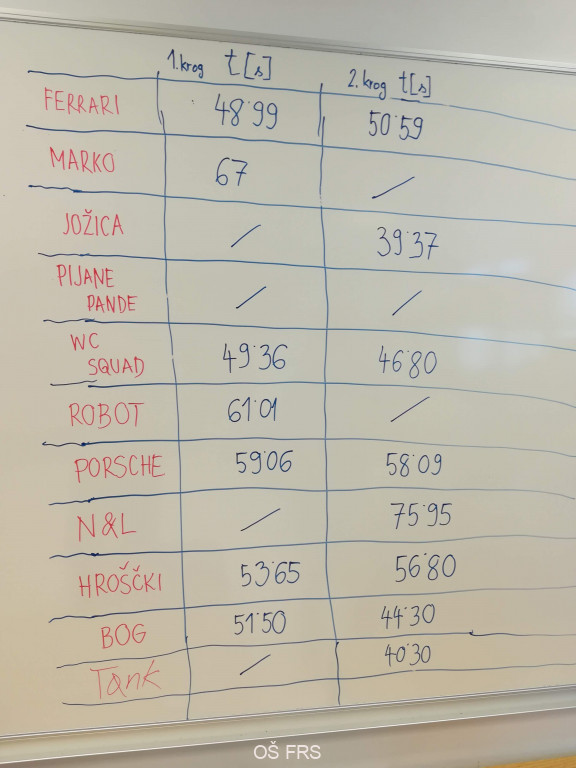 1.krog t[s] 2.krog t[s]
FERRARI 48˙99 50˙59
MARKO 67 /
JOŽICA / 39˙37
PIJANE
PANDE / /
WC
SQUAD 49˙36 46˙80
ROBOT 61˙01 /
PORSCHE 59˙06 58˙09
N&L / 75˙95
HROŠČKI 53˙65 56˙80
BOG 51˙50 44˙30
Tank / 40˙30
OŠ FRS